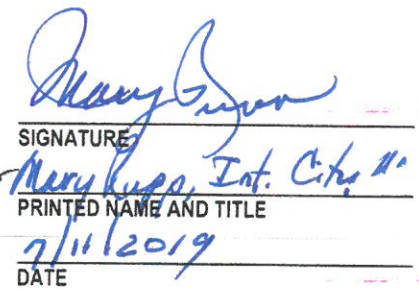 Mary
SIGNATURE
Mary Rupp, Int. City
PRINTED NAME AND TITLE
7/11/2019
DATE